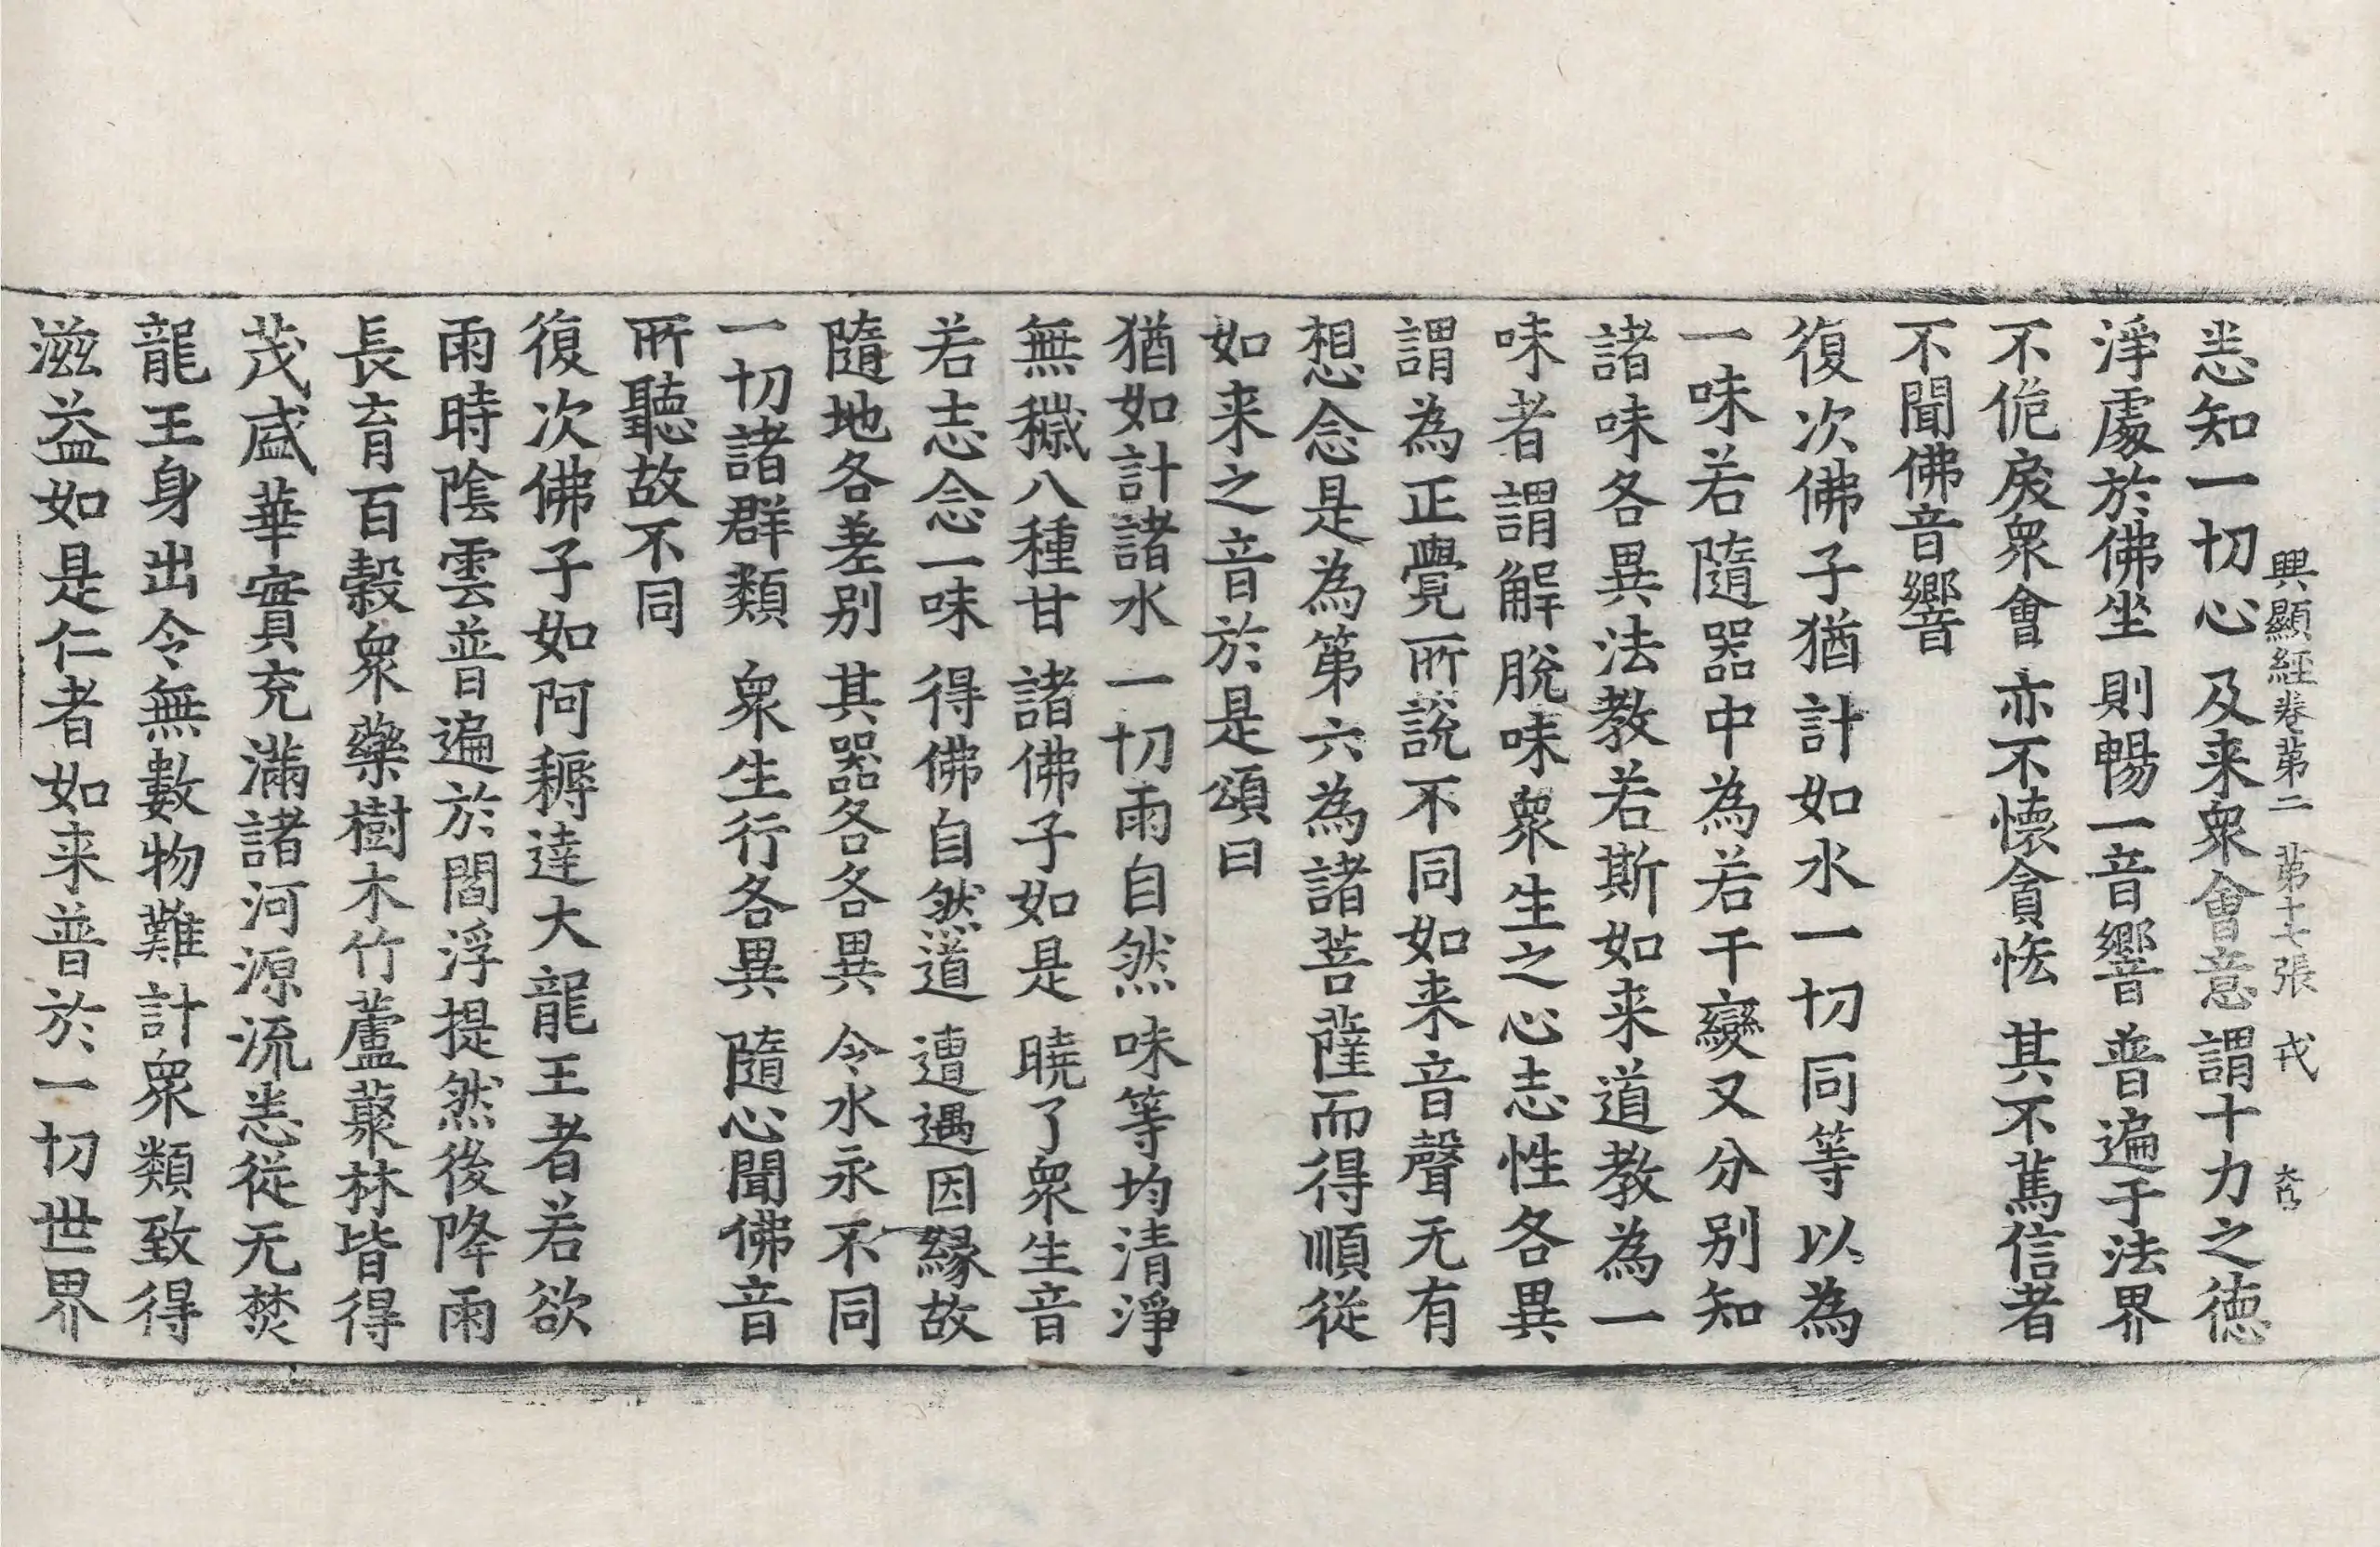 興顯經卷第二 第十七張 戎
悉知一切心 及来衆會意 謂十力之德
淨處於佛坐 則暢一音響 普遍于法界
不佹戾衆會 亦不懷貪恡 其不篤信者
不聞佛音響
復次佛子猶計如水一切同等以為
一味若隨器中為若干變又分别知
諸味各異法教若斯如来道教為一
味者謂解脫味衆生之心志性各異
謂為正覺所說不同如来音聲无有
想念是為第六為諸菩薩而得順從
如来之音於是頌曰
猶如計諸水 一切雨自然 味等均清淨
無穢八種甘 諸佛子如是 曉了衆生音
若志念一味 得佛自然道 遭遇因縁故
隨地各差别 其器各各異 令水永不同
一切諸群類 衆生行各異 隨心聞佛音
所聽故不同
復次佛子如阿耨達大龍王者若欲
雨時陰雲普遍於閻浮提然後降雨
長育百穀衆藥樹木竹蘆藂林皆得
茂盛華實充滿諸河源流悉從无焚
龍王身出令無數物難計衆類致得
滋益如是仁者如来普於一切世界